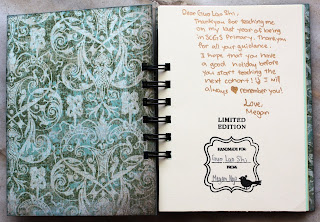 Dear Guo Lao Shi,
Thankyou for teaching me
on my last year of being
in SCGS Primary. Thankyou
for all your guidance.
I hope that you have
a good holiday before
you start teaching the
next cohort! I will
always remember you!
Love,
Megan
LIMITED
EDITION
HANDMADE FOR:
Guo Lao Shi
FROM:
Megan